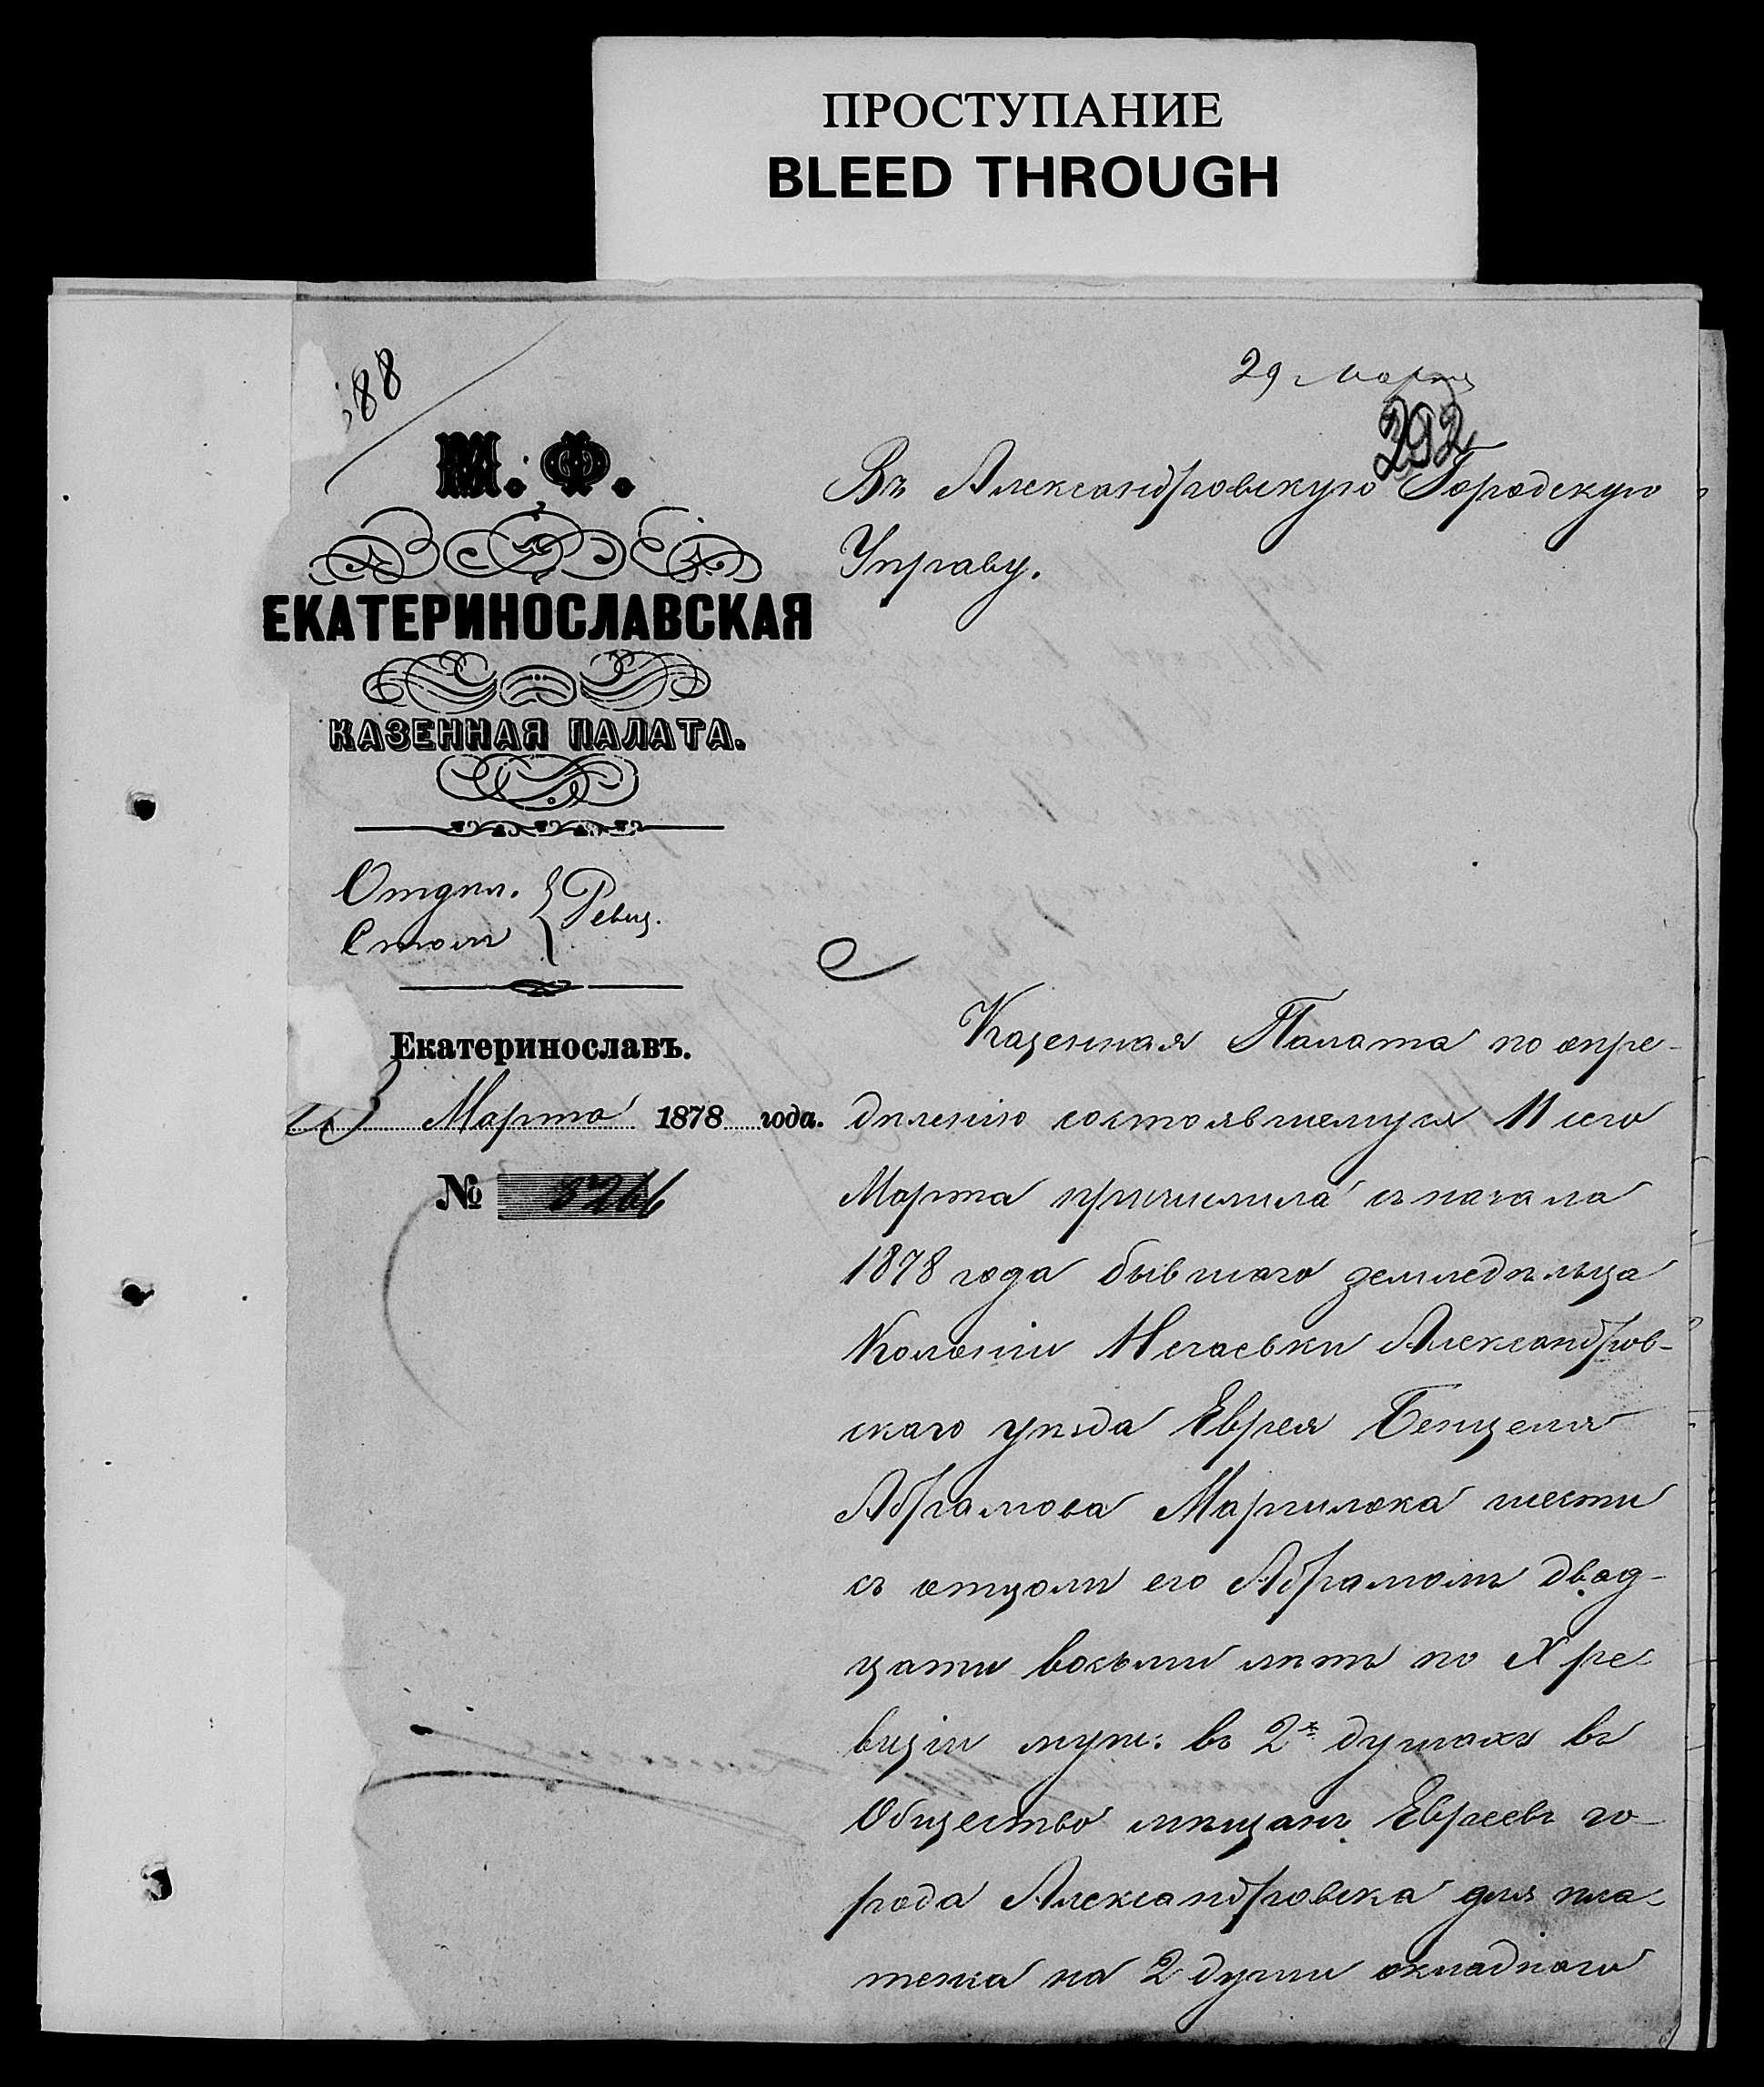 ПРОСТУПАНИЕ
BLEED THROUGH
29 Марта
292
88
М. Ф.
ЕКАТЕРИНОСЛАВСКАЯ
КАЗЕННАЯ ПАЛАТА.
Отдѣл.
Столъ
Ревиз.
Екатеринославъ.
Марта 1878 года.
№
Въ Александровскую Городскую
Управу.
Казенная Палата по опре-
дѣленію состоявшемуся 11 сего
Марта причислила съ начала
1878 года бывшаго земледѣльца
Колоніи Нечаевки Александров-
скаго уѣзда Еврея Бенцеля
Абрамова Маргилока шести
съ отцомъ его Абрамомъ двад-
цати восьми лѣтъ по X ре-
визіи муж. въ 2х душахъ въ
Общество мѣщанъ Евреевъ го-
рода Александровска для пла-
тежа на 2 души окладнаго